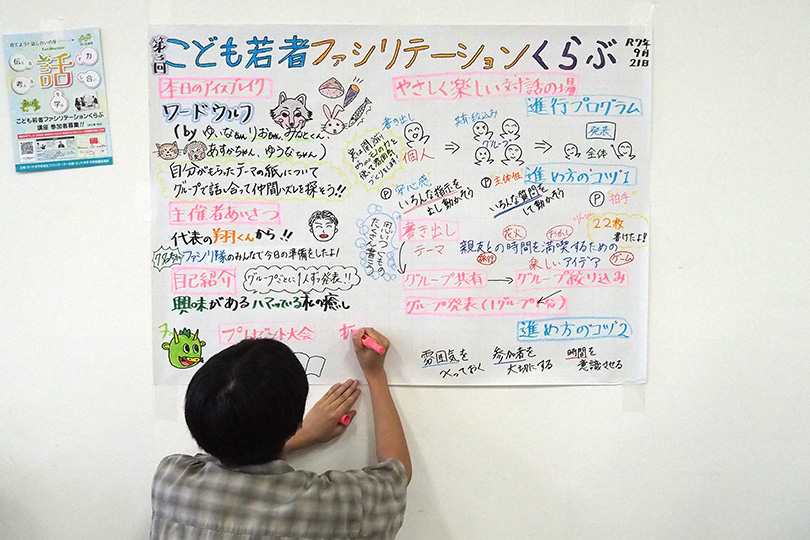 第三回
こども若者ファシリテーションくらぶ
R7年
9月
21日
本日のアイスブレイク
ワードウルフ
(by ゆいなちゃん、りおちゃん、みなとくん
あすかちゃん、ゆうなちゃん)
自分がもらったテーマの紙について
グループで話し合って仲間ハズレを探そう!!
主催者あいさつ
代表の翔くんから!!
ファシリ隊のみんなで今日の準備をしたよ!
自己紹介
グループごとに1人ずつ発表!!
興味がある ハマっている 私の癒し
プレゼント大会
やさしく楽しい対話の場
進行プログラム
書き出し
個人
グループ
発表
全体
進め方のコツ1
P 安心感
いろんな指示を
出し動かそう
P 主体性
いろんな質問を
して動かそう
P 拍手
思いつくものたくさん書こう
書き出し
テーマ
花火
おかし
22枚
書けたよ!
親友との時間を満喫するための
楽しいアイデア
旅行
ゲーム
グループ共有 → グループ絞り込み
グループ発表(1グループ1分)
進め方のコツ2
雰囲気を
つくっておく
参加者を
大切にする
時間を
意識させる
話
伝える
力
考える
合い
学
こども若者ファシリテーションくらぶ
講座 参加者募集!!